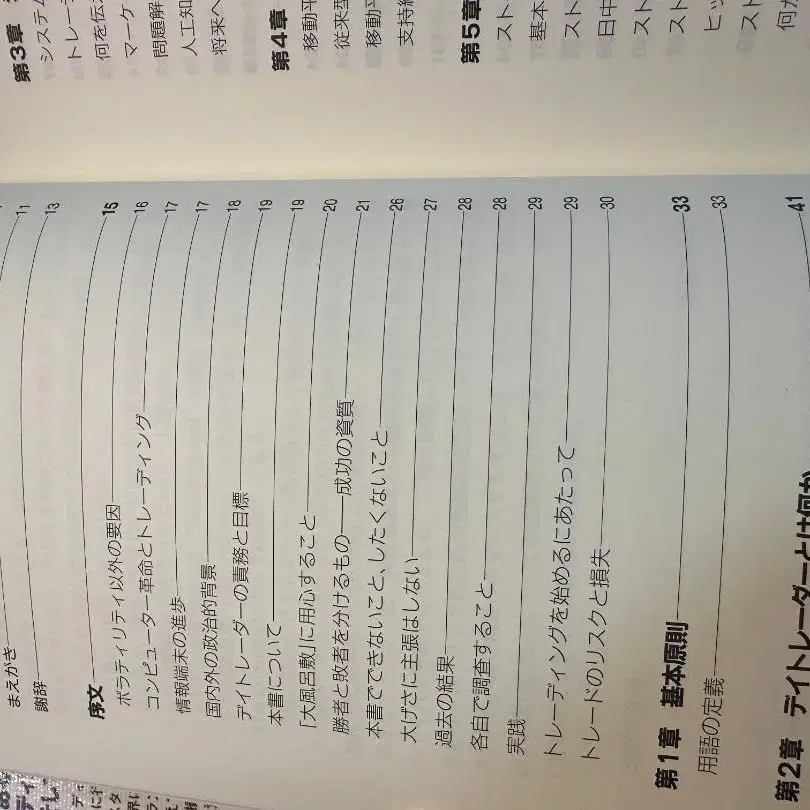 まえがき 11
謝辞 13
序文 15
ボラティリティ以外の要因 16
コンピューター革命とトレーディング 17
情報端末の進歩 17
国内外の政治的背景 18
デイトレーダーの責務と目標 19
本書について 19
「大風呂敷」に用心すること 20
勝者と敗者を分けるもの──成功の資質 21
本書でできないこと、したくないこと 26
大げさに主張はしない 27
過去の結果 28
各自で調査すること 28
実践 29
トレーディングを始めるにあたって 29
トレードのリスクと損失 30
第1章 基本原則 33
用語の定義 33
第2章 デイトレーダーとは何か 41
第3章
システム
トレー
何を伝
マーケ
問題解
人工知
将来へ
第4章
移動平
従来型
移動平
支持線
第5章
スト
基本
スト
日中
スト
スト
ヒッ
スト
何か